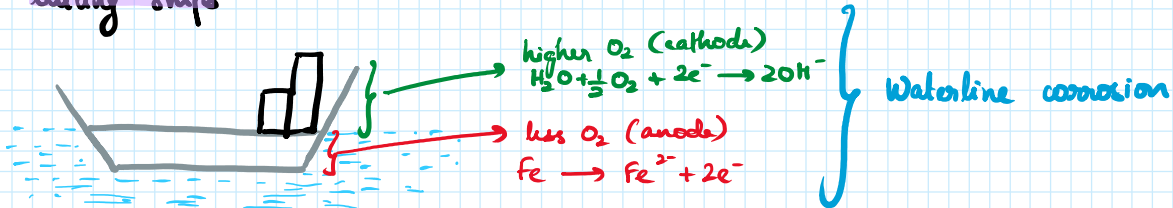 ships
higher O₂ (cathode)
H₂O + ½ O₂ + 2e⁻ → 2OH⁻
less O₂ (anode)
Fe → Fe²⁻ + 2e⁻
Waterline corrosion